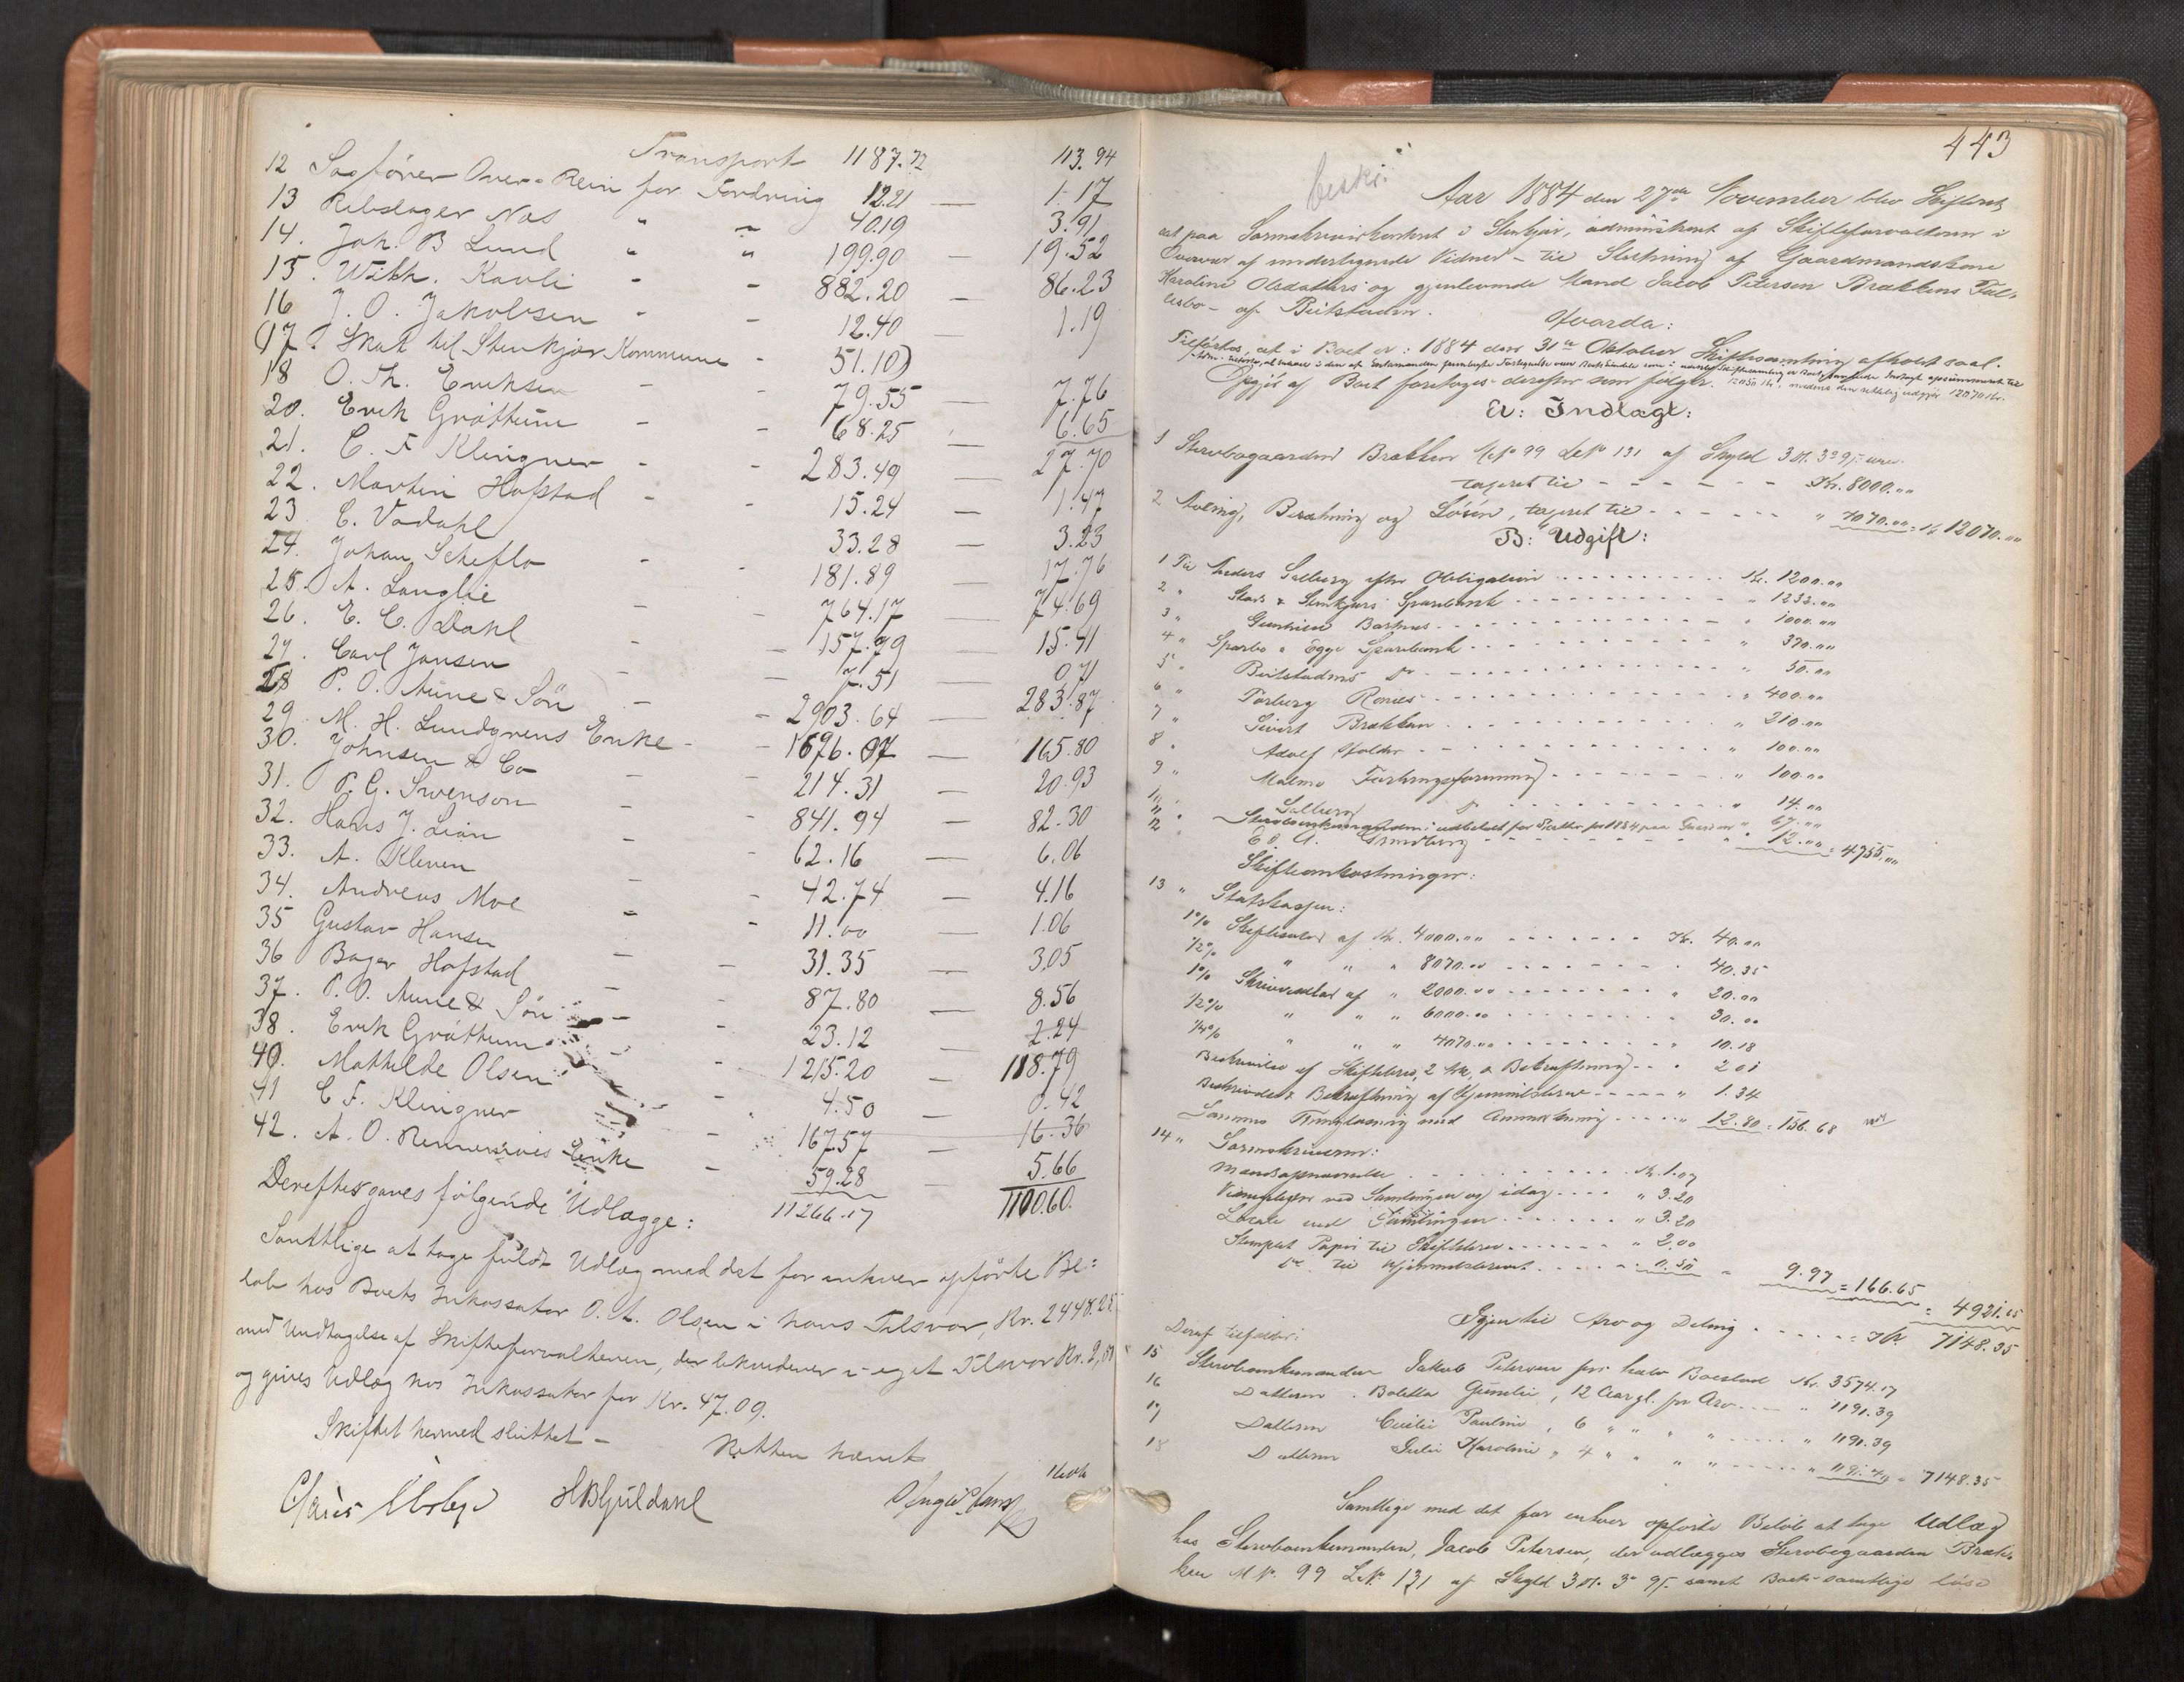 Transport 1187.72 113.94
12 Sagfører Over-Rein for Fordring 12.21 — 1.17
13 Rebslager Næs " " 40.19 3.91
14. Joh. B Lund " " 199.90 — 19.52
15. Wilh. Kavli - - 882.20 — 86.23
16 J. O. Jakobsen - - 12.40 1.19
(17. Skat til Stenkjær Kommune - 51.10)
18 O. Th. Eriksen - - 79.55 — 7.76
20. Erik Grøttum - - 68.25 — 6.65
21. C. F Klingner - - 283.49 27.70
22. Martin Hofstad - - 15.24 — 1.47
23 C. Vodahl 33.28 — 3.23
24. Johan Scheflo - - 181.89 — 17.76
25. A. Langlie - - 764.17 — 74.69
26. E. C. Dahl - - 157.99 — 15.41
27. Carl Jansen - - 7.51 — 0 71
28 P. O. Aune & Søn - - 2903.64 — 283.87
29. M. H. Lundgrens Enke - - 1696.07 — 165.80
30. Johnsen & Co - - 214.31 — 20.93
31. P. G. Svenson - - 841.94 — 82.30
32. Hans J. Lian 62.16 — 6.06
33. A. Kleven - - 42.74 — 4.16
34. Andreas Moe - - 11.00 — 1.06
35 Gustav Hansen - - 31.35 — 3.05
36 Bager Hofstad - - 87.80 — 8.56
37. P. O. Aune & Søn - - 23.12 — 2.24
38. Erik Grøttum - - 1215.20 — 118.79
40. Mathilde Olsen - - 4.50 — 0.42
41 C F. Klingner - - 167.57 — 16.36
42. A. O. Enke - 59.28 — 5.66
11266.17 1100.60.
Derefter gaves følgende Udlægge:
Samtlige at tage fuldt Udlæg med det for enhver opførte Be=
løb hos Boets Inkassator O. A. Olsen i hans Tilsvar, Kr. 2448.25
med Undtagelse af Skifteforvalteren, der likviderer i eget Tilsvar Kr.
og gives Udlæg hos Inkassator for Kr. 47.09.
Skiftet hermed sluttet —
Retten hævet
HBGjuldahl
443
Aar 1884 den 27de November blev Skifteret
sat paa Sorenskriverkontoret i Stenkjær, administreret af Skifteforvalteren i
Overvær af undertegnede Vidner - til Slutning af Gaardmandskone
Karoline Olsdatters og gjenlevende Mand Jacob Petersen Brækkens Fæl-
lesbo - af Beitstaden.
Hvorda:
Tilførtes, at i Boet er: 1884 den 31te Oktober Skiftesamling afholdt
Opgjør af Boet foretoges derefter som følger.
A: Indtægt:
1 Stervbogaarden Brækken M.No 99 L.No 131 af Skyld 3 Ort. 3 9
taxeret til - - - - - - Kr. 8000.00
2 Avling, Besætning og Løsøre, taxeret til - - - - - " 4070.00 = Kr 12070.00
B: Udgift:
1 Til Anders Solberg efter Obligation - - - - Kr. 1200.00
2 " Stods & Stenkjærs Sparebank - - - - " 1232.00
3 " Barhus - - - - " 1000.00
4 " Sparbo & Egge Sparebank - - - - " 370.00
5 " Beitstadens Do - - - - " 50.00
6 " Torberg - - - - " 400.00
7 " Sivert Brækken - - - - " 210.00
8 " Adolf - - - - " 100.00
9 " Malmo - - - - " 100.00
10 " Solberg - - - - " 14.00
11 " udbetalt for Skatter for 1884 paa Gaarden " 67.00
12 " - - - - " 12.00 = 4755.00
Skifteomkostninger:
13 " Statskassen:
1% Skiftesalær af Kr. 4000.00 - - - - Kr. 40.00
1/2% " " " 8070.00 - - - - " 40.35
1% Skriversalær af " 2000.00 - - - - " 20.00
1/2% " " " 6000.00 - - - - " 30.00
1/4% " " " 4070.00 - - - - " 10.18
Beskrivelse af Skiftebrev, 2 Ark, & Bekræftning - - " 2 01
Beskrivelse & Bekræftning af Hjemmelsbrev - - - - " 1.34
Sammes Thinglæsning med Anmærkning - - - " 12.80 = 156.68
14 " Sorenskriveren:
Mandsopnævnelse - - - - Kr. 1.07
Vidnepenge ved Samlingen og idag - - - - " 3.20
Locale ved Samlingen - - - - " 3.20
Stemplet Papir til Skiftebrev - - - - " 2.00
Do til Hjemmelsbrevet - - - - " 0.50 = 9.97 = 166.65 = 4921.65
Igjen til Arv og Deling - - - - = Kr. 7148.35
Deraf tilfalder:
15 Stervboenkemanden Jakob Petersen for halv Boeslod Kr. 3574.17
16 Datteren Boletta Gunelie, 12 Aar gl. for Arv - - - " 1191.39
17 Datteren Cecilie Pauline, 6 " " " " - - - " 1191.39
18 Datteren Julie Karoline, 4 " " " " - - - " 1191.40 = 7148.35
Samtlige med det for enhver opførte Beløb at tage Udlæg
hos Stervboenkemanden, Jacob Petersen, der udlægges Stervbogaarden Bræk-
ken M No. 99 L.No. 131 af Skyld 3 Ort. 3 9 samt Boets samtlige løse